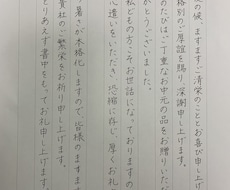 の候、ますますご清栄のこととお喜び申し上げ
格別のご厚誼を賜り、深謝申し上げます。
のたびは、ご丁重なお中元の品をお贈りいただ
がとうございました。
私どもの方こそお世話になっておりますの
心遣いをいただき、恐縮に存じ、厚くお礼
暑さが本格化しますので皆様のますます
貴社のご繁栄をお祈り申し上げます。
とりあえず書中をもってお礼申し上げます。